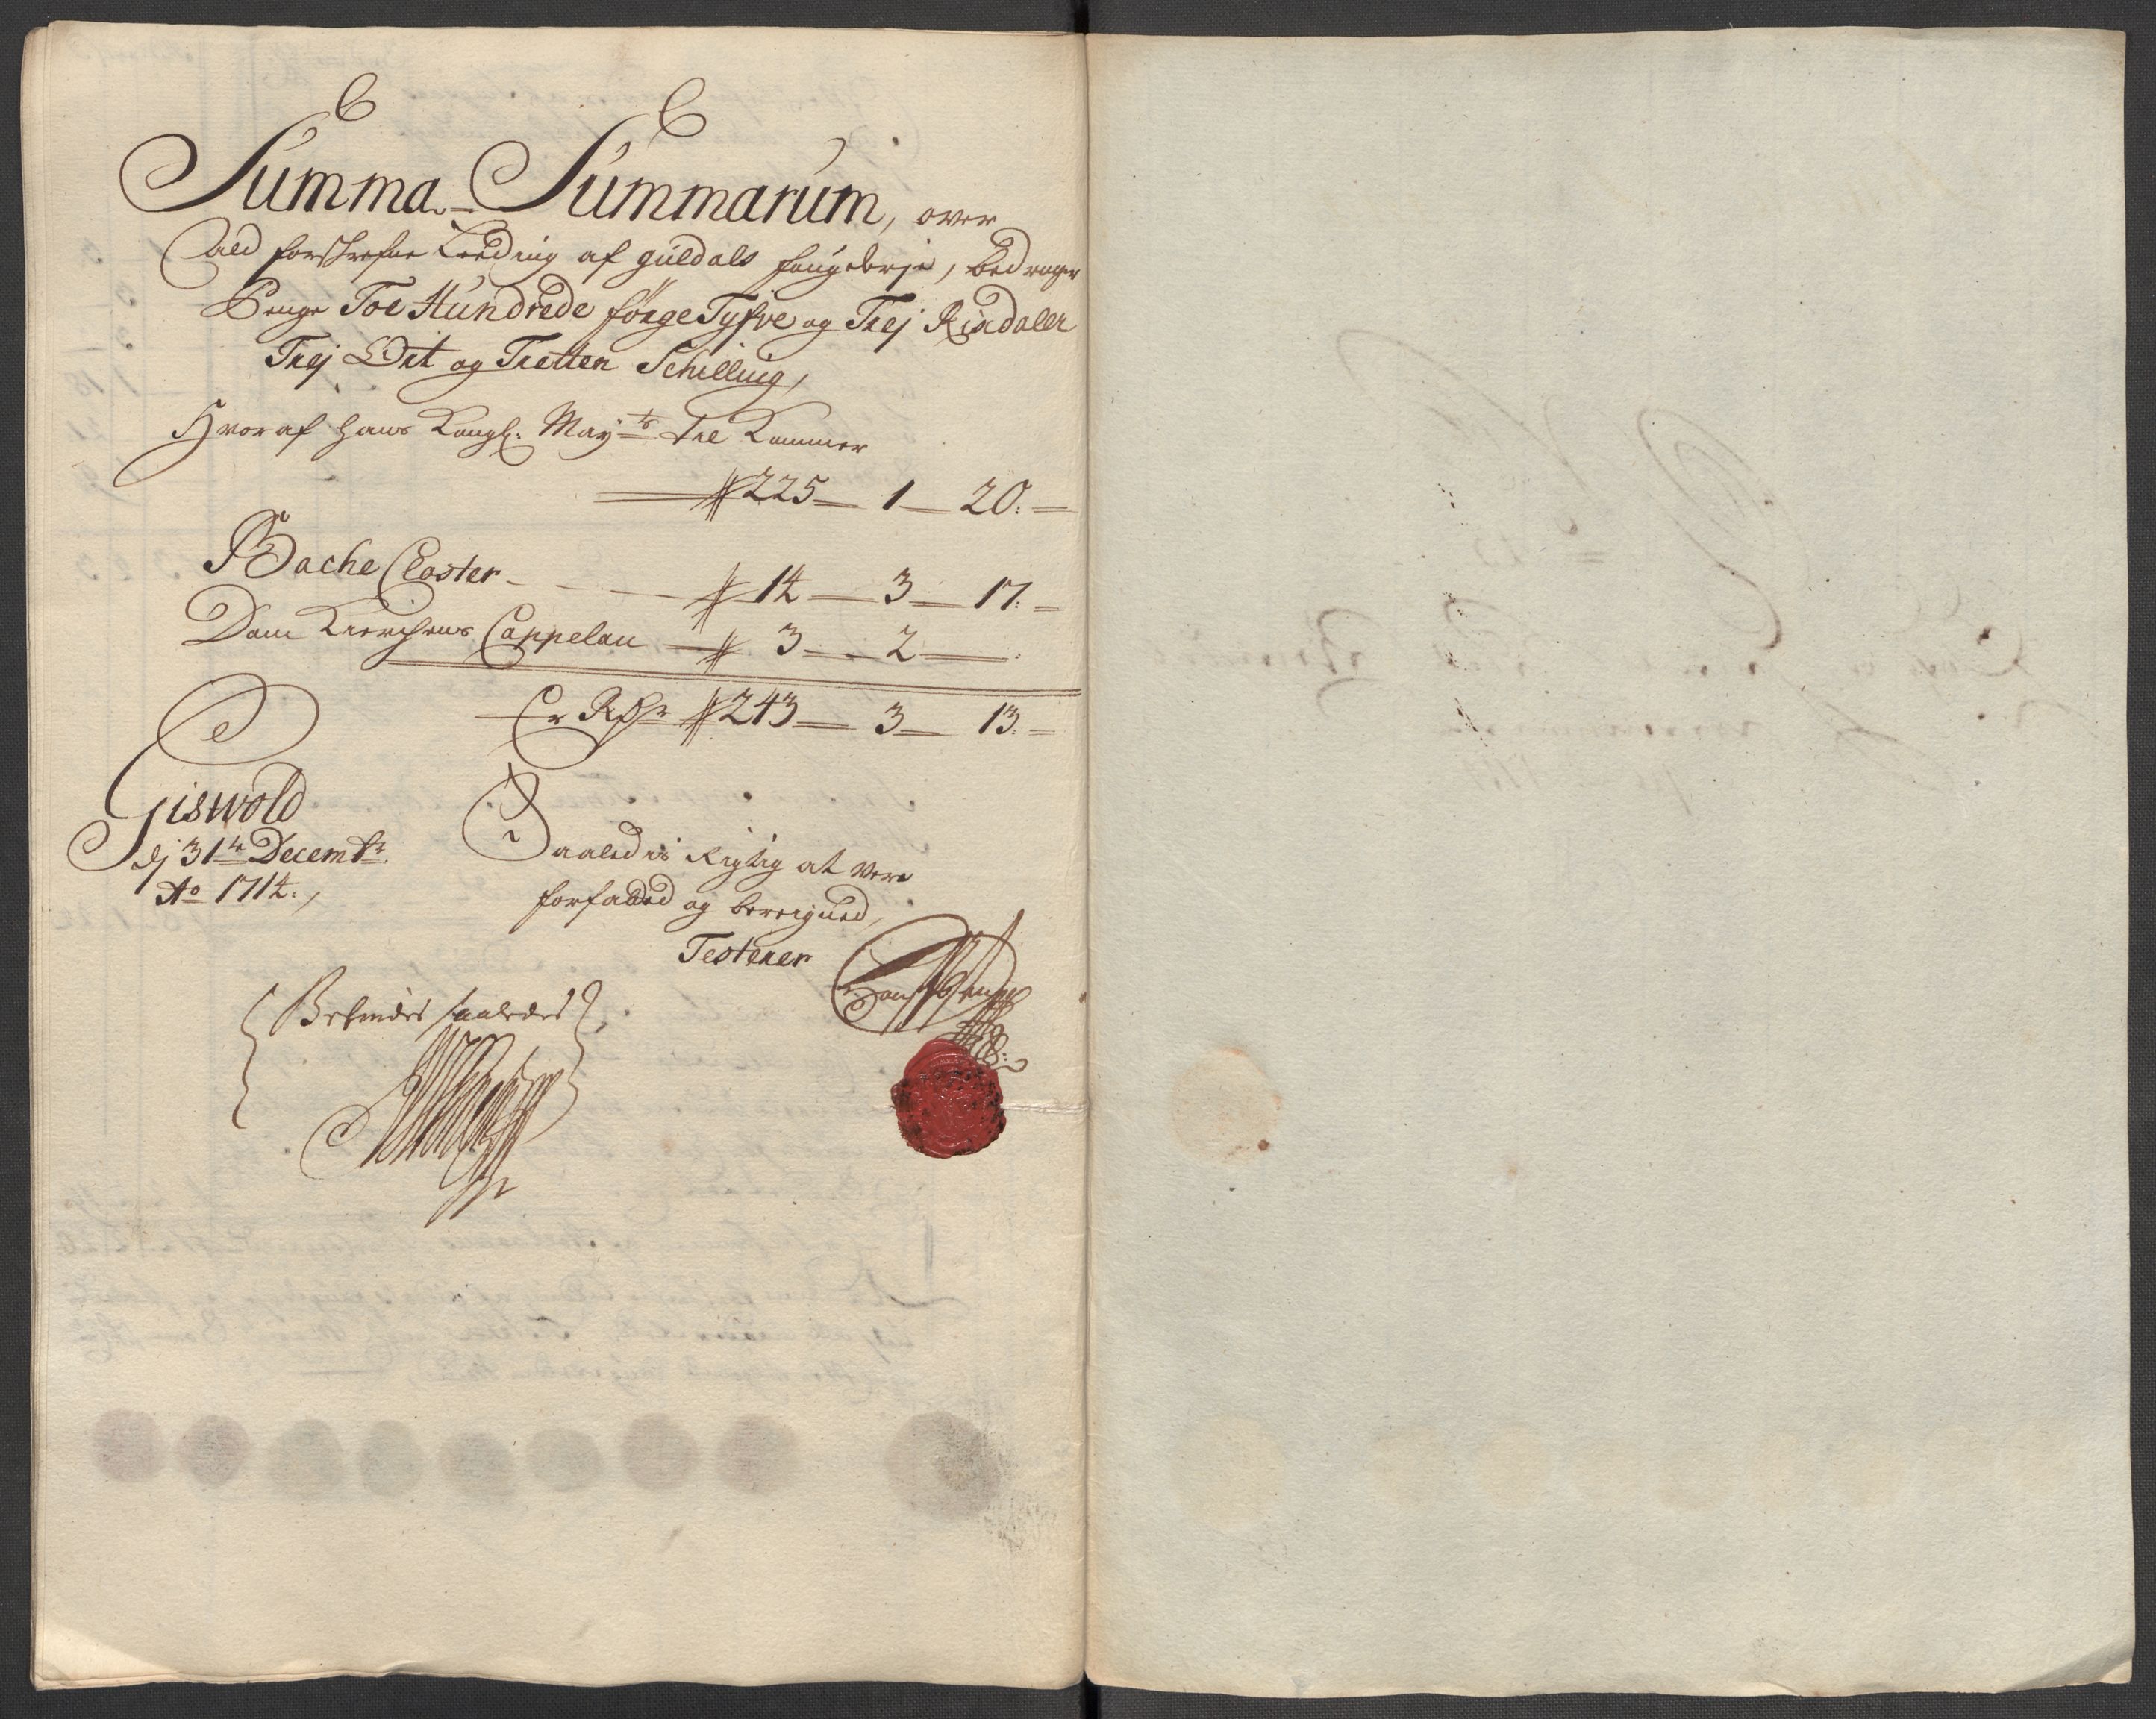 Summa Summarum, over
ald forskrefne Leeding af Guldals fougderje, bedrager
Penge Toe Hundrede förge Tyfve og Trej Rixdaler
Trej Ort og Tretten Schilling,
Hvoraf Hans Kongl: Mayts Tel Kommer
225 — 1 — 20: —
Bache Closter - - — 14 — 3 — 17: —
Dom Kierchens Cappelan — 3 — 2 — :
Er Rdr 243 — 3 — 13: —
Giswold
dj 31te Decembr
Ao 1714:,
Saaledis Rigtig at Vere
forfatted og beregned,
Testerer
Befindes saaledes